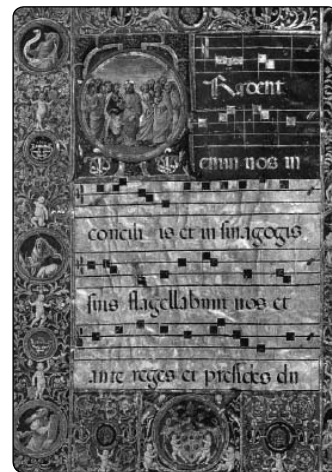 Tradent
enim uos in
concili is et in sinagogis
suis flagellabunt uos et
ante reges et presides du